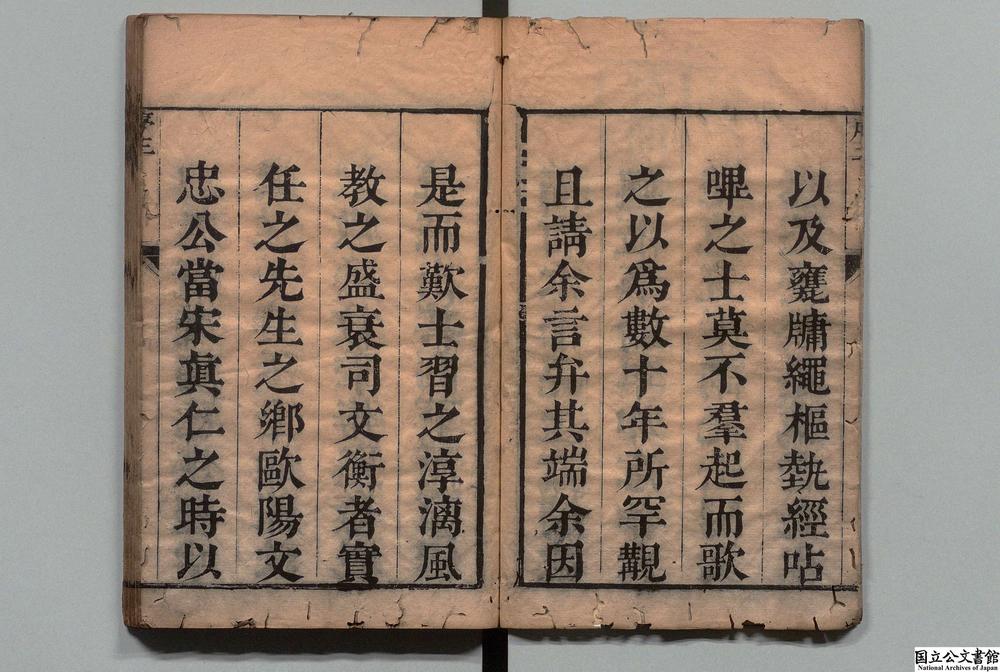 以及甕牖繩樞執經呫
嗶之士莫不羣起而歌
之以爲數十年所罕觀
且請余言弁其端余因
是而歎士習之淳漓風
教之盛衰司文衡者實
任之先生之鄉歐陽文
忠公當宋眞仁之時以
国立公文書館
National Archives of Japan